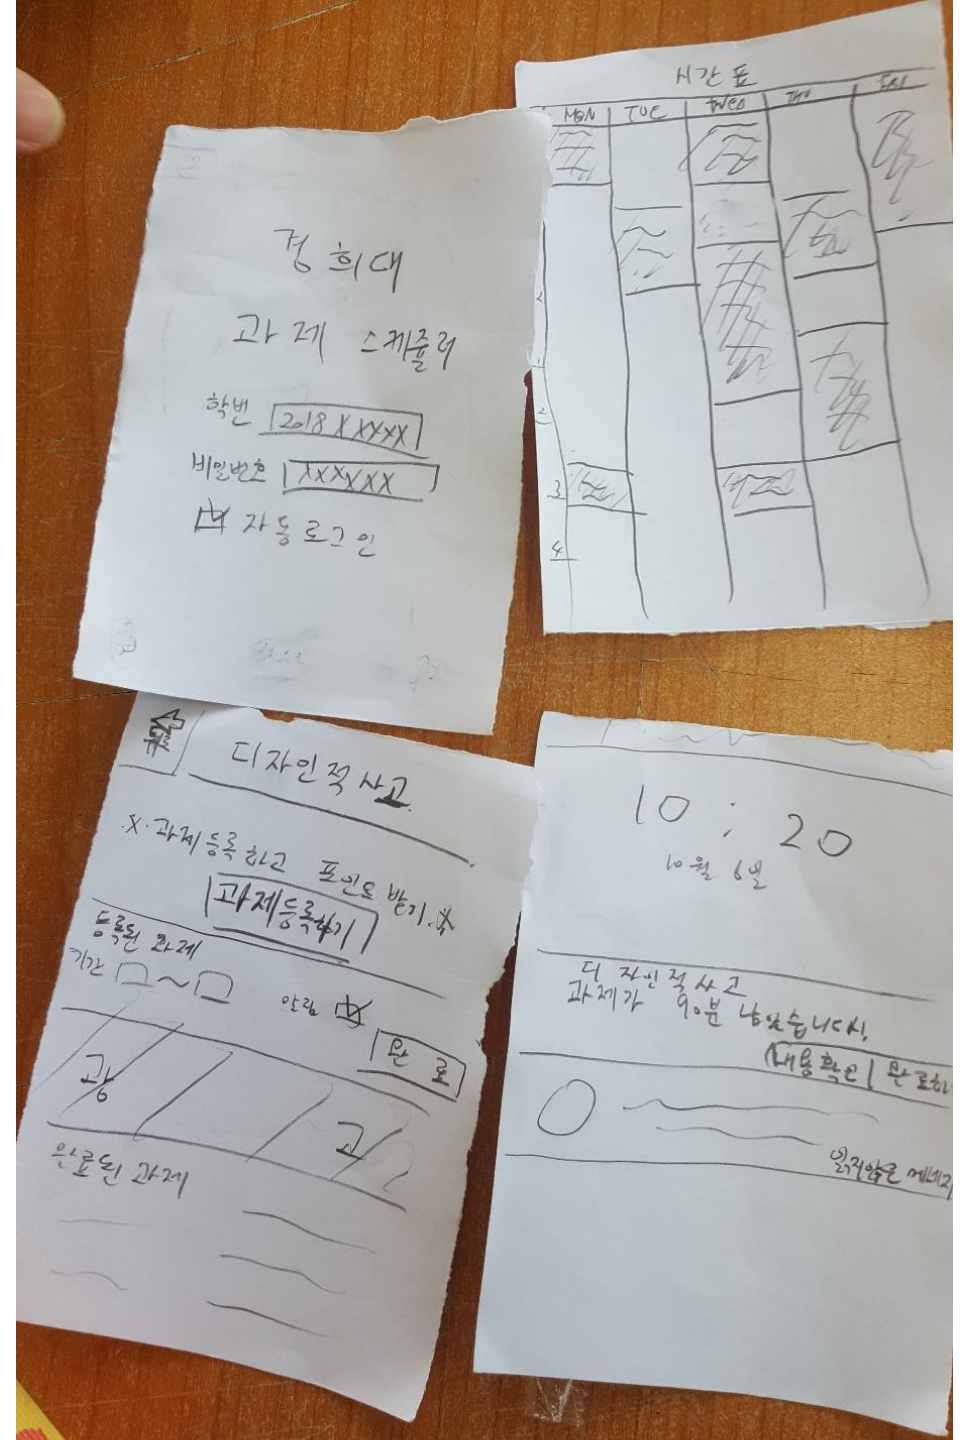 경희대
과제 스케쥴러
학번 2018XXXXX
비밀번호 XXXXXX
자동로그인
시간표
MON TUE WED THU FRI
2
3
4
디자인적사고
과제등록하고 포인트받기
과제등록하기
등록된 과제
기간 ~ 알림
완료
광 고
완료된 과제
10 : 20
10월 6일
디자인적사고
과제가 90분 남았습니다!
내용확인 완료하
읽지않은 메세지